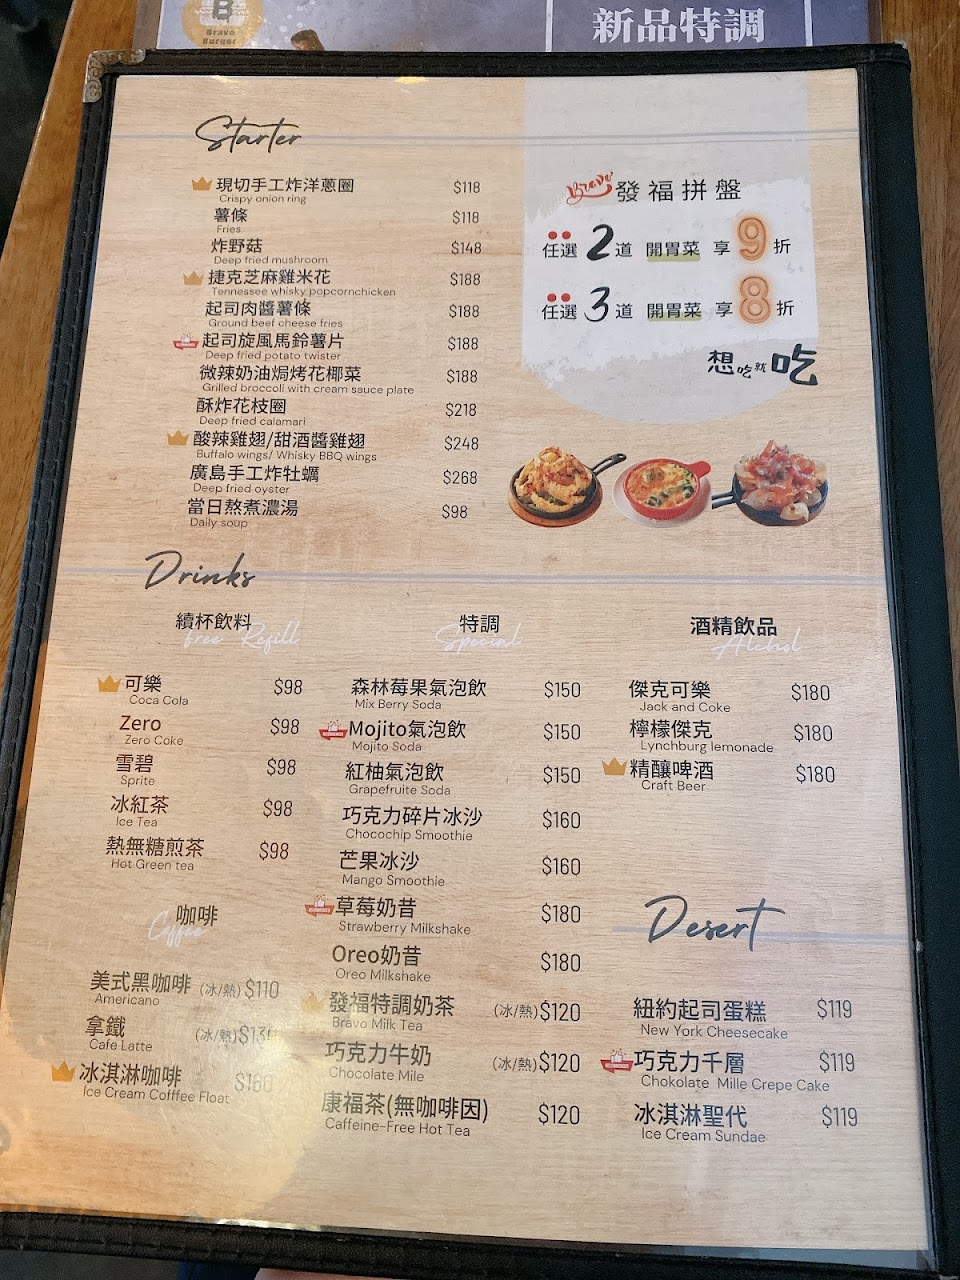 B
Bravo
Burger
新品特調
Starter
現切手工炸洋蔥圈 $118
Crispy onion ring
薯條 $118
Fries
炸野菇 $148
Deep fried mushroom
捷克芝麻雞米花 $188
Tennessee whisky popcornchicken
起司肉醬薯條 $188
Ground beef cheese fries
起司旋風馬鈴薯片 $188
Deep fried potato twister
微辣奶油焗烤花椰菜 $188
Grilled broccoli with cream sauce plate
酥炸花枝圈 $218
Deep fried calamari
酸辣雞翅/甜酒醬雞翅 $248
Buffalo wings/ Whisky BBQ wings
廣島手工炸牡蠣 $268
Deep fried oyster
當日熬煮濃湯 $98
Daily soup
Bravo 發福拼盤
任選 2 道 開胃菜 享 9 折
任選 3 道 開胃菜 享 8 折
想吃就吃
Drinks
續杯飲料
free Refill
可樂 $98
Coca Cola
Zero $98
Zero Coke
雪碧 $98
Sprite
冰紅茶 $98
Ice Tea
熱無糖煎茶 $98
Hot Green tea
咖啡
Coffee
美式黑咖啡 (冰/熱) $110
Americano
拿鐵 (冰/熱) $130
Cafe Latte
冰淇淋咖啡 $160
Ice Cream Cofffee Float
特調
Special
森林莓果氣泡飲 $150
Mix Berry Soda
Mojito氣泡飲 $150
Mojito Soda
紅柚氣泡飲 $150
Grapefruite Soda
巧克力碎片冰沙 $160
Chocochip Smoothie
芒果冰沙 $160
Mango Smoothie
草莓奶昔 $180
Strawberry Milkshake
Oreo奶昔 $180
Oreo Milkshake
發福特調奶茶 (冰/熱) $120
Bravo Milk Tea
巧克力牛奶 (冰/熱) $120
Chocolate Mile
康福茶(無咖啡因) $120
Caffeine-Free Hot Tea
酒精飲品
Alchol
傑克可樂 $180
Jack and Coke
檸檬傑克 $180
Lynchburg lemonade
精釀啤酒 $180
Craft Beer
Desert
紐約起司蛋糕 $119
New York Cheesecake
巧克力千層 $119
Chokolate Mille Crepe Cake
冰淇淋聖代 $119
Ice Cream Sundae